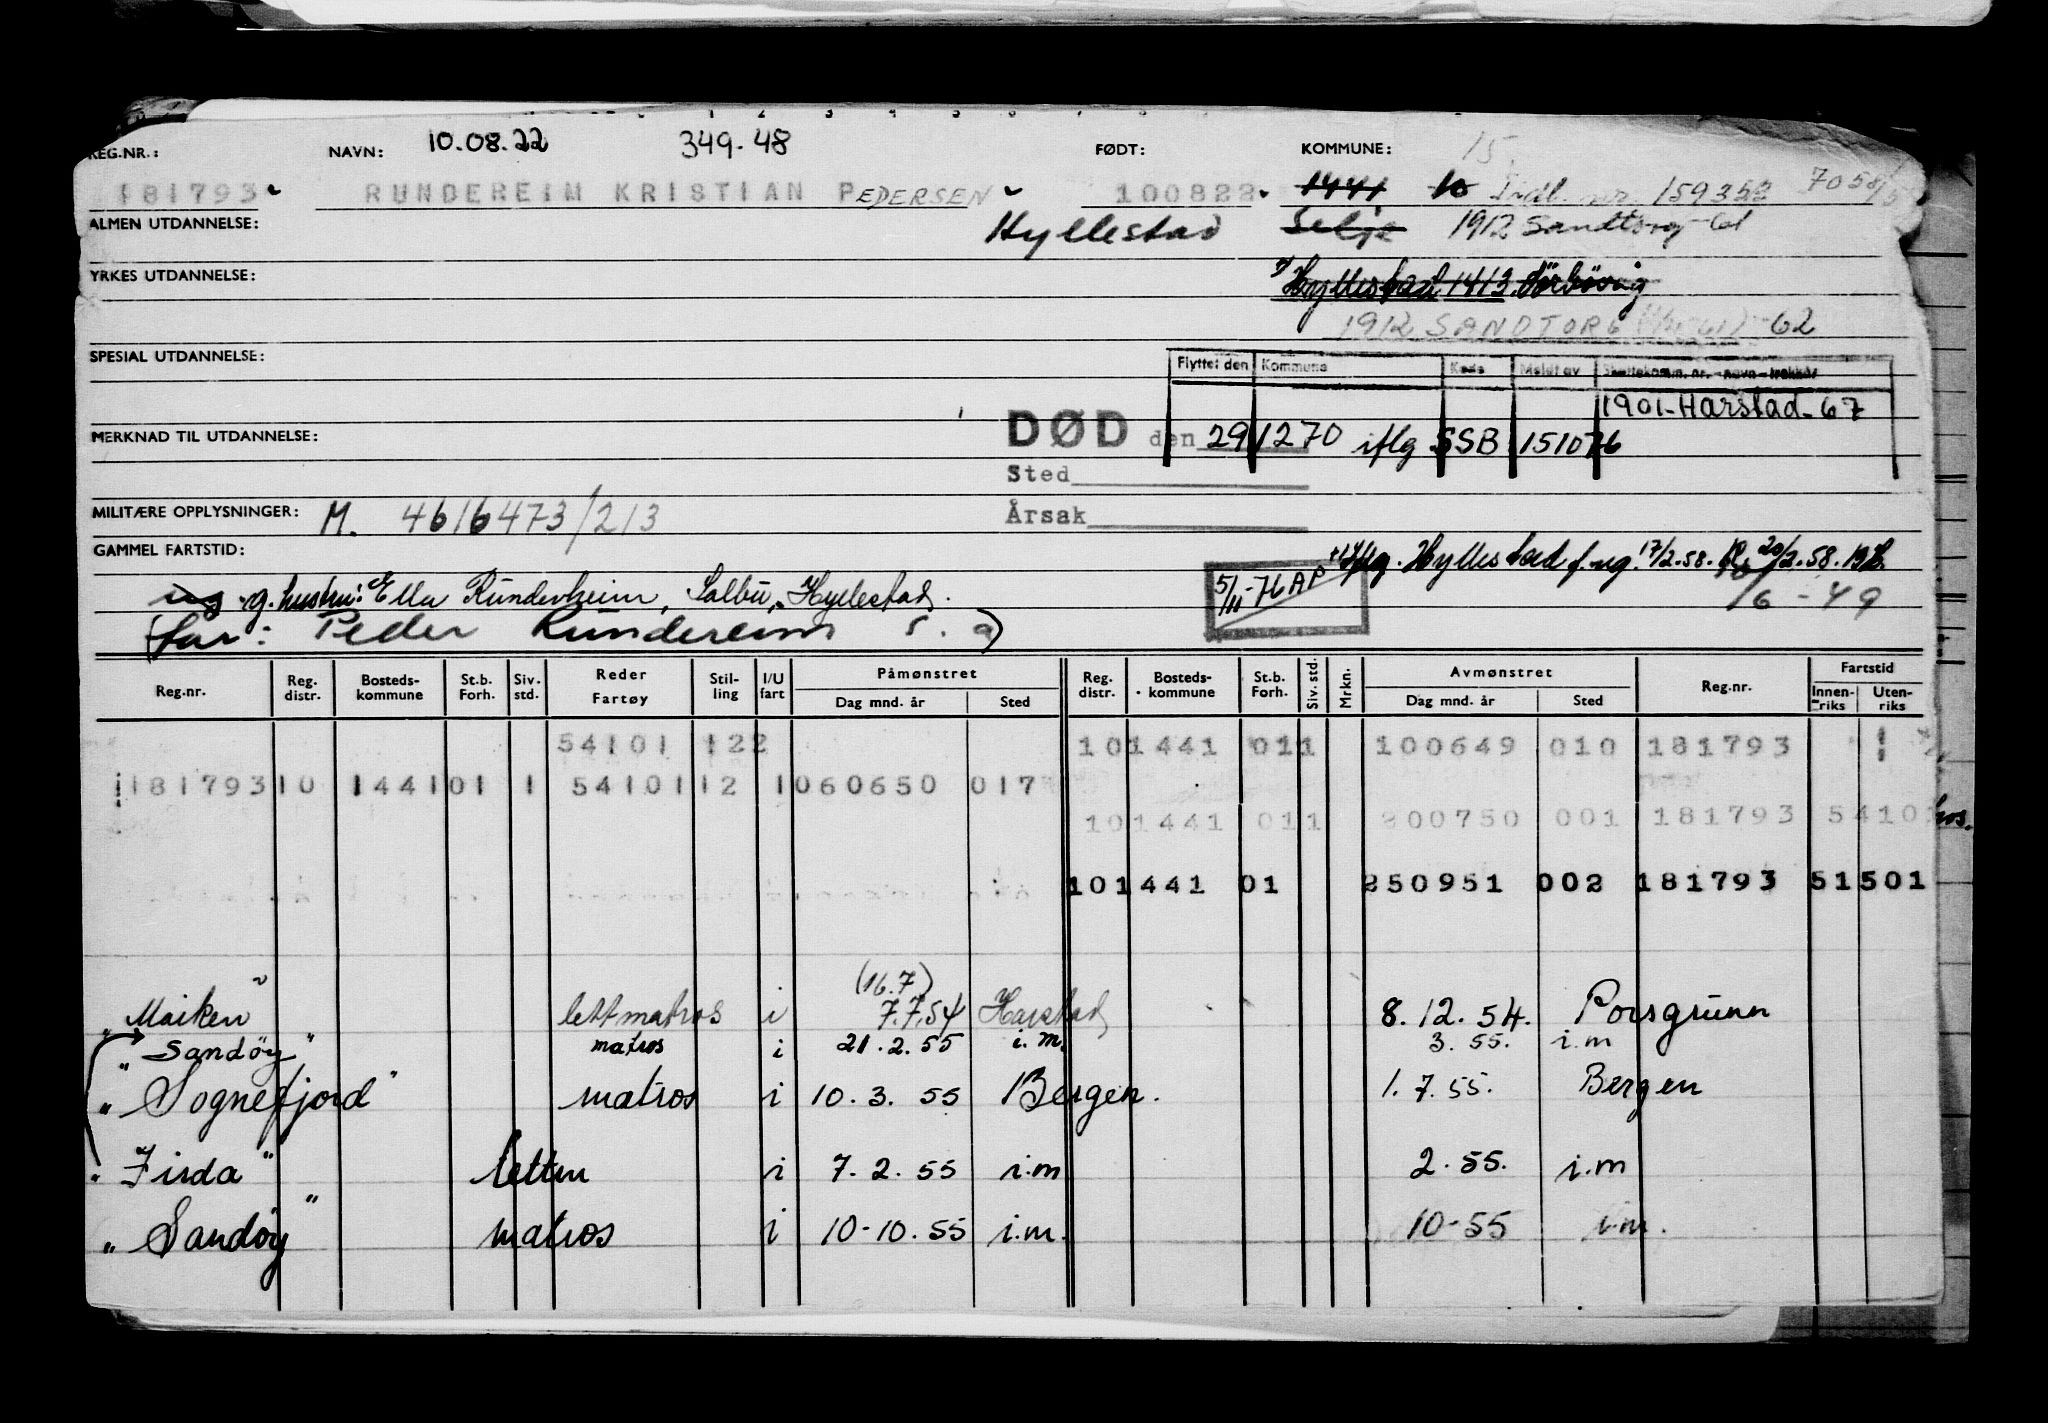 REG.NR.: NAVN: 10.08.22 349.48 FØDT: KOMMUNE: 15
181793 RUNDEREIM KRISTIAN PEDERSEN 100822 1441 10 159352 7058/5
ALMEN UTDANNELSE: Hyllestad Selje 1912 Sandtorg-61
YRKES UTDANNELSE: Hyllestad 1413
1912 SANDTORG -62
SPESIAL UTDANNELSE:
Flyttet den Kommune Kode Meldt av Skattekomm. nr. - navn - trekkår
1901-Harstad-67
MERKNAD TIL UTDANNELSE: DØD den 291270 iflg SSB 151076
Sted
MILITÆRE OPPLYSNINGER: M. 4616473/213 Årsak
GAMMEL FARTSTID: Hyllestad f. ug. 17/2.58. 20/2.58. 1912
ug g. hustru: Ella Runderheim, Salbu, Hyllestad. 5/11-76 AP /6-49
(far: Peder Rundereim s. a)
Reg.nr. Reg. distr. Bosteds- kommune St.b. Forh. Siv. std. Reder Fartøy Stil- ling I/U fart Påmønstret Dag mnd. år Sted Reg. distr. Bosteds- kommune St.b. Forh. Siv. std. Mrkn. Avmønstret Dag mnd. år Sted Reg.nr. Fartstid Innen- riks Uten- riks
54101 122 101441 011 100649 010 181793
181793 10 144101 1 54101 12 1060650 017
101441 011 200750 001 181793 5410 hos.
101441 01 250951 002 181793 51501
(16.7)
"Maiken" lettmatros i 7.7.54 Harstad 8.12.54. Porsgrunn
"Sandøy" matros i 21.2.55 i.m. 3.55. i.m
"Sognefjord" matros i 10.3.55 Bergen. 1.7.55. Bergen
"Firda" lettm i 7.2.55 i.m 2.55. i.m
"Sandøy" matros i 10-10.55 i.m. 10-55 i.m.